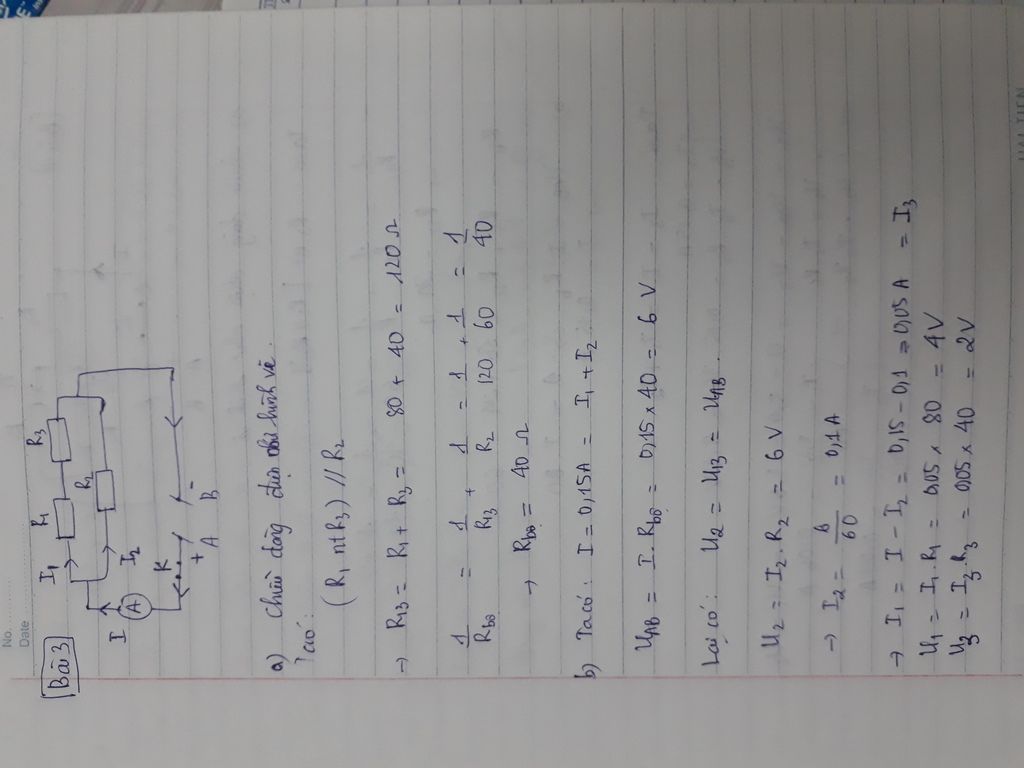 No.
Date
Bài 3
R1 R3
I1
R2
I I2
A
K
+ -
A B
a) Chiều dòng điện như hình vẽ.
Ta có:
(R1 nt R3) // R2
→ R13 = R1 + R3 = 80 + 40 = 120 Ω
1/Rbo = 1/R13 + 1/R2 = 1/120 + 1/60 = 1/40
→ Rbo = 40 Ω
b) Ta có: I = 0,15A = I1 + I2
UAB = I. Rbo = 0,15 x 40 = 6 V
Lại có: U2 = U13 = UAB.
U2 = I2. R2 = 6 V
→ I2 = 6/60 = 0,1 A
→ I1 = I - I2 = 0,15 - 0,1 = 0,05 A = I3
U1 = I1. R1 = 0,05 x 80 = 4V
U3 = I3. R3 = 0,05 x 40 = 2V